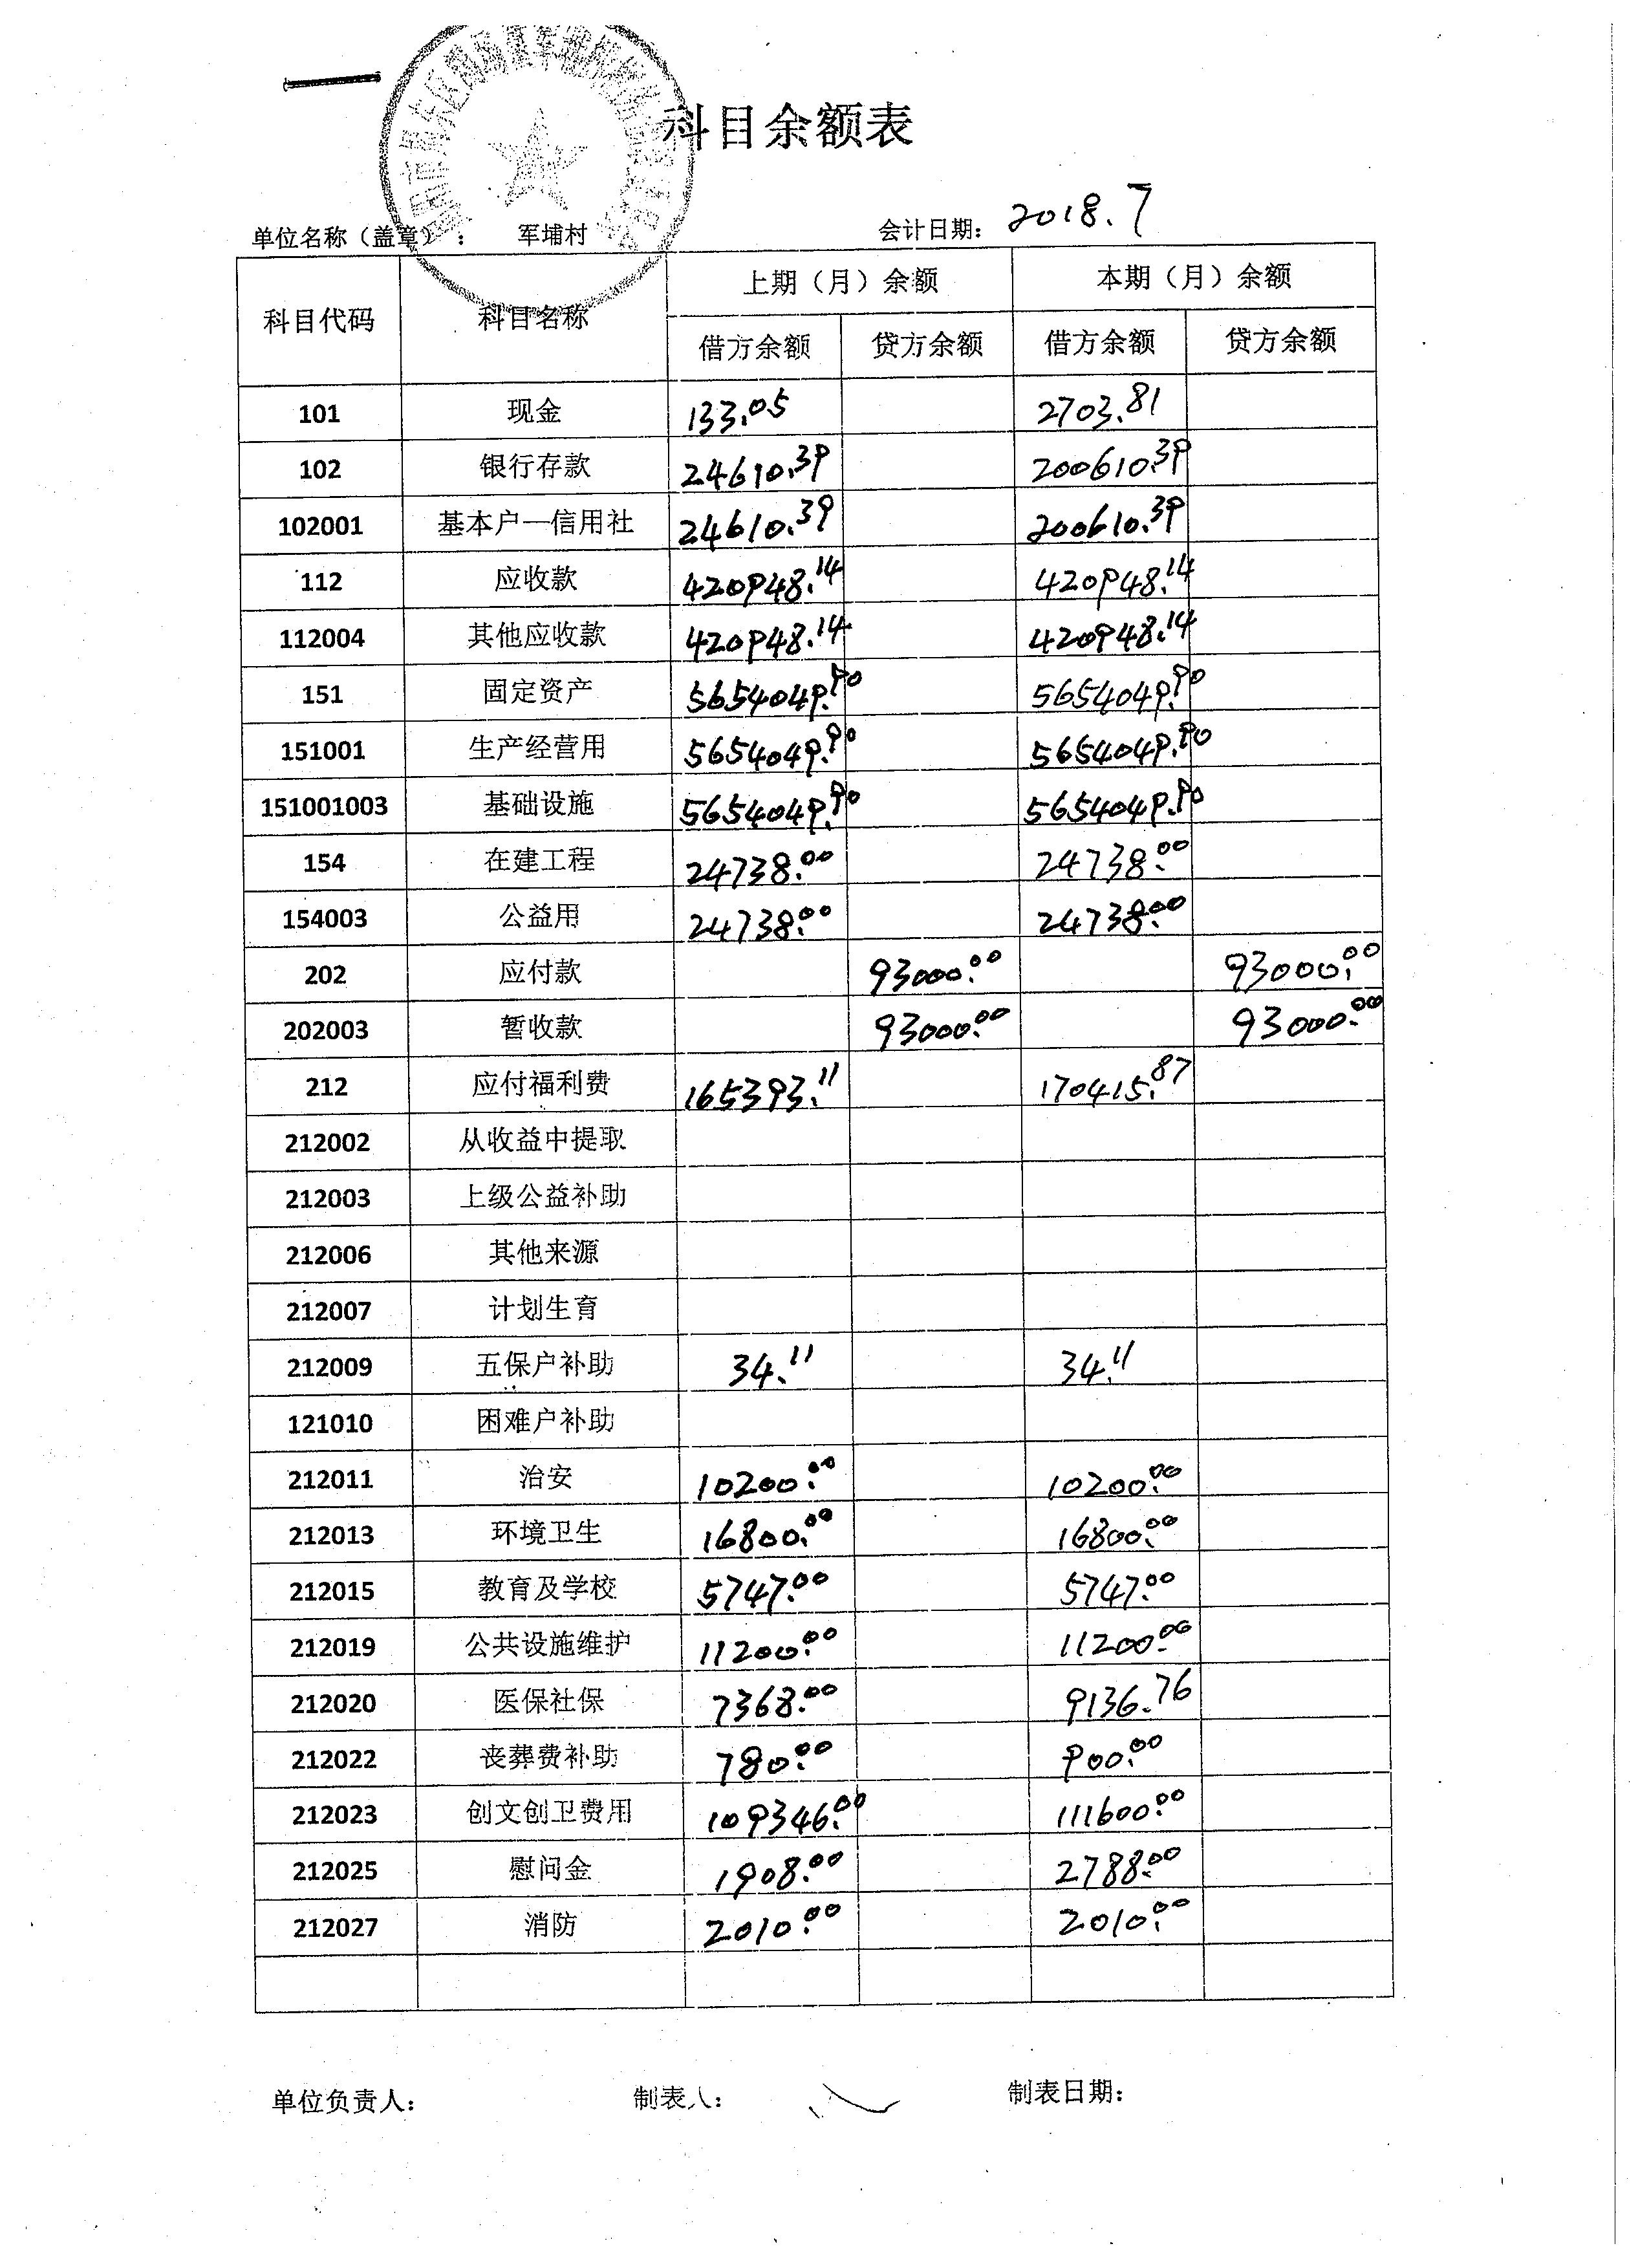 科目余额表
单位名称（盖章）： 军埔村 会计日期： 2018.7
科目代码 科目名称 上期（月）余额 本期（月）余额
借方余额 贷方余额 借方余额 贷方余额
101 现金 133.05 2703.81
102 银行存款 24610.39 200610.39
102001 基本户一信用社 24610.39 200610.39
112 应收款 420948.14 420948.14
112004 其他应收款 420948.14 420948.14
151 固定资产 5654049.90 5654049.90
151001 生产经营用 5654049.90 5654049.90
151001003 基础设施 5654049.90 5654049.90
154 在建工程 24738.00 24738.00
154003 公益用 24738.00 24738.00
202 应付款 93000.00 93000.00
202003 暂收款 93000.00 93000.00
212 应付福利费 165393.11 170415.87
212002 从收益中提取
212003 上级公益补助
212006 其他来源
212007 计划生育
212009 五保户补助 34.11 34.11
121010 困难户补助
212011 治安 10200.00 10200.00
212013 环境卫生 16800.00 16800.00
212015 教育及学校 5747.00 5747.00
212019 公共设施维护 11200.00 11200.00
212020 医保社保 7368.00 9136.76
212022 丧葬费补助 780.00 900.00
212023 创文创卫费用 109346.00 111600.00
212025 慰问金 1908.00 2788.00
212027 消防 2010.00 2010.00
单位负责人： 制表人： 制表日期：